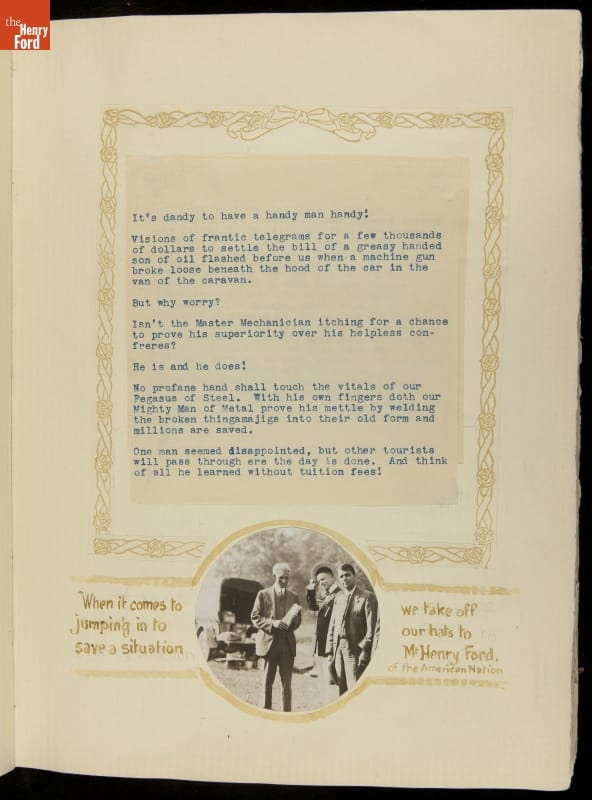 the
Henry
Ford
It's dandy to have a handy man handy!
Visions of frantic telegrams for a few thousands
of dollars to settle the bill of a greasy handed
son of oil flashed before us when a machine gun
broke loose beneath the hood of the car in the
van of the caravan.
But why worry?
Isn't the Master Mechanician itching for a chance
to prove his superiority over his helpless con-
freres?
He is and he does!
No profane hand shall touch the vitals of our
Pegasus of Steel. With his own fingers doth our
Mighty Man of Metal prove his mettle by welding
the broken thingamajigs into their old form and
millions are saved.
One man seemed disappointed, but other tourists
will pass through ere the day is done. And think
of all he learned without tuition fees!
When it comes to
jumping in to
save a situation
we take off
our hats to
Mr Henry Ford.
of the American Nation